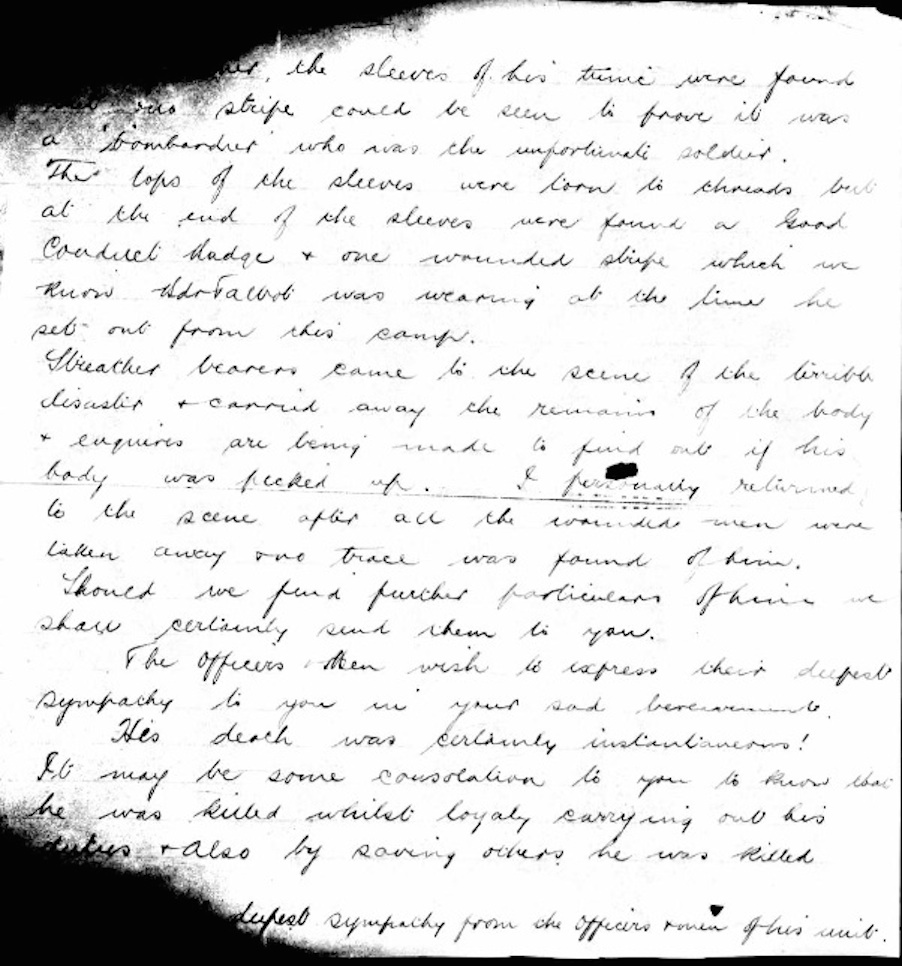 the sleeves of his tunic were found
no stripe could be seen to prove it was
a Bombardier who was the unfortunate soldier.
The tops of the sleeves were torn to threads but
at the end of the sleeves were found a Good
Conduct Badge + one wounded stripe which we
know Bdr Talbot was wearing at the time he
set out from this camp.
Streather bearers came to the scene of the terrible
disaster + carried away the remains of the body
+ enquires are being made to find out if his
body was picked up. I personally returned
to the scene after all the wounded men were
taken away + no trace was found of him.
Should we find further particulars of him we
shall certainly send them to you.
The Officers + Men wish to express their deepest
sympathy to you in your sad bereavement.
His death was certainly instantaneous!
It may be some consolation to you to know that
he was killed whilst loyaly carrying out his
duties + also by saving others he was killed
deepest sympathy from the Officers + men of his unit.